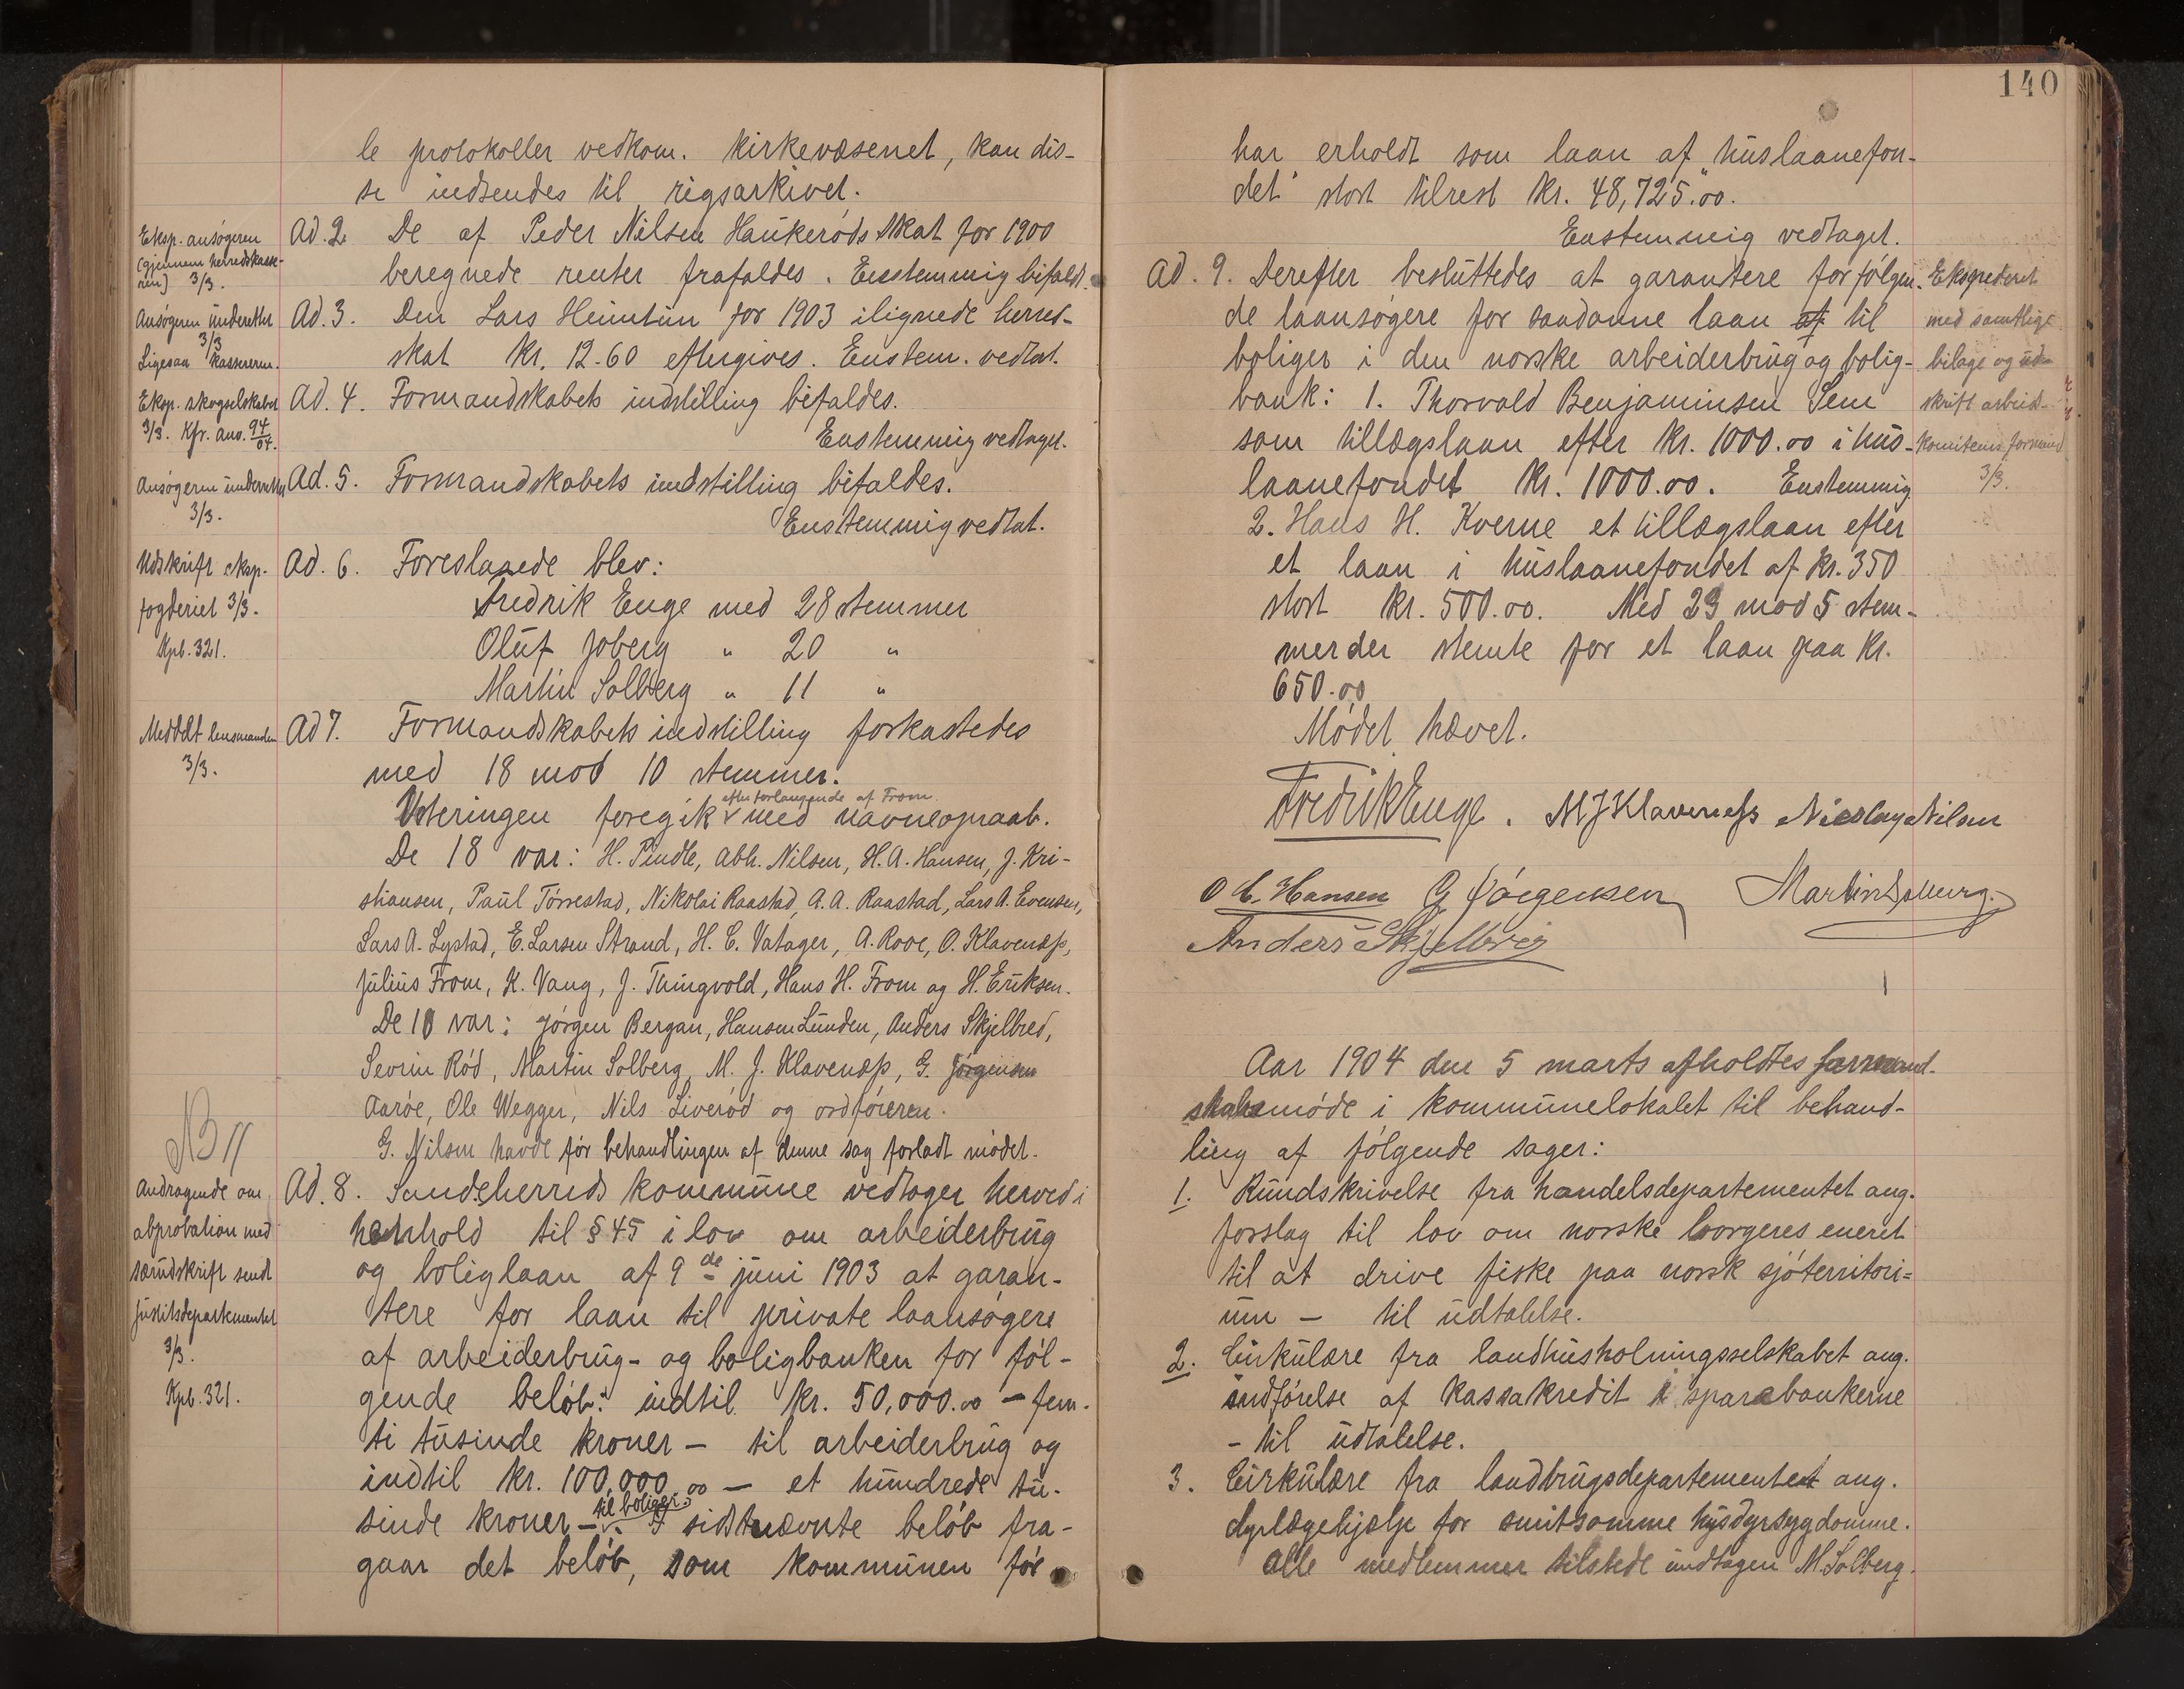 le protokoller vedkom. kirkevæsenet, kan dis-
se indsendes til rigsarkivet.
Eksp. ansøgeren
(gjennem herredskasse-
ren) 3/3.
Ad. 2 De af Peder Nilsen Haukerøds skat for 1900
beregnede renter frafaldes. Enstemmig bifaldt.
Ansøgeren underrettet
3/3
Ligesaa kassereren.
Ad. 3. Den Lars Heimtun for 1903 ilignede herred-
skat kr. 12.60 eftergives. Enstem. vedtat.
Eksp. skogselskabet
3/3. Kfr. ano. 94/04.
Ad. 4. Formandskabets indstilling bifaldes.
Enstemmig vedtaget.
Ansøgeren underrettet
3/3.
Ad. 5. Formandskabets indstilling bifaldes.
Enstemmig vedtat.
Udskrift eksp.
fogderiet 3/3.
Kpb. 321.
Ad. 6. Foreslaaede blev:
Fredrik Enge med 28 stemmer
Oluf Joberg " 20 "
Martin Solberg " 11 "
Meddelt lensmanden
3/3.
Ad 7. Formandskabets indstilling forkastedes
med 18 mod 10 stemmer.
efter forlangende af From.
Voteringen foregik med navneopraab.
De 18 var: H. Pindle, Abh. Nilsen, H. A. Hansen, J. Kri-
stiansen, Paul Tørrestad, Nikolai Raastad, A. A. Raastad, Lars A. Evensen,
Lars A. Lystad, E. Larsen Strand, H. C. Vatager, A. Rove, O. Klavenæss,
Julius From, K. Vang, J. Thingvold, Hans H. From og H. Eriksen.
De 10 var: Jørgen Bergan, Hansen Lunden, Anders Skjelbred,
Sevrin Rød, Martin Solberg, M. J. Klavenæss, G. Jørgensen
Aarøe, Ole Wegger, Nils Liverød og ordføreren.
G. Nilsen havde før behandlingen af denne sag forladt mødet.
NB //
Andragende om
abprobation med
særudskrift sendt
justitsdepartementet
3/3.
Kpb. 321.
Ad. 8. Sandeherreds kommune vedtager herved i
henhold til § 45 i lov om arbeiderbrug
og boliglaan af 9de juni 1903 at garan-
tere for laan til private laansøgere
af arbeiderbrug- og boligbanken for føl-
gende beløb: indtil kr. 50,000.00 - fem-
ti tusinde kroner - til arbeiderbrug og
indtil kr. 100,000.00 - et hundrede tu-
til boliger.
sinde kroner -. I sidstnævnte beløb fra-
gaar det beløb, som kommunen før
140
har erholdt som laan af "huslaanefon-
det" stort tilrest kr. 48,725.00.
Enstemmig vedtaget.
Ad. 9. Derefter besluttedes at garantere for følgen-
de laansøgere for saadanne laan af til
boliger i den norske arbeiderbrug og bolig-
bank: 1. Thorvald Benjaminsen Sem
som tillægslaan efter kr. 1000.00 i hus-
laanefondet kr. 1000.00. Enstemmig
2. Hans H. Kverne et tillægslaan efter
et laan i huslaanefondet af kr. 350
stort kr. 500.00. Med 23 mod 5 stem-
mer der stemte for et laan paa kr.
650.00
Mødet hævet.
Ekspederet
med samtlige
bilage og ud-
skrift arbeid-
komiteens formand
3/3.
Fredrik Enge. M J Klaveness Nicolay Nilsen
O C. Hansen G Jørgensen Martin Solberg.
Anders Skjelbred
Aar 1904 den 5 marts afholdtes formand-
skabsmøde i kommunelokalet til behand-
ling af følgende sager:
1. Rundskrivelse fra handelsdepartementet ang.
forslag til lov om norske borgeres eneret
til at drive fiske paa norsk sjøterritori-
um - til udtalelse.
2. Cirkulære fra landhusholningsselskabet ang.
indførelse af kassakredit i sparebankerne
- til udtalelse.
3. Cirkulære fra landbrugsdepartementet ang.
dyrlægehjælp for smitsomme husdyrsygdomme.
Alle medlemmer tilstede undtagen M. Solberg.